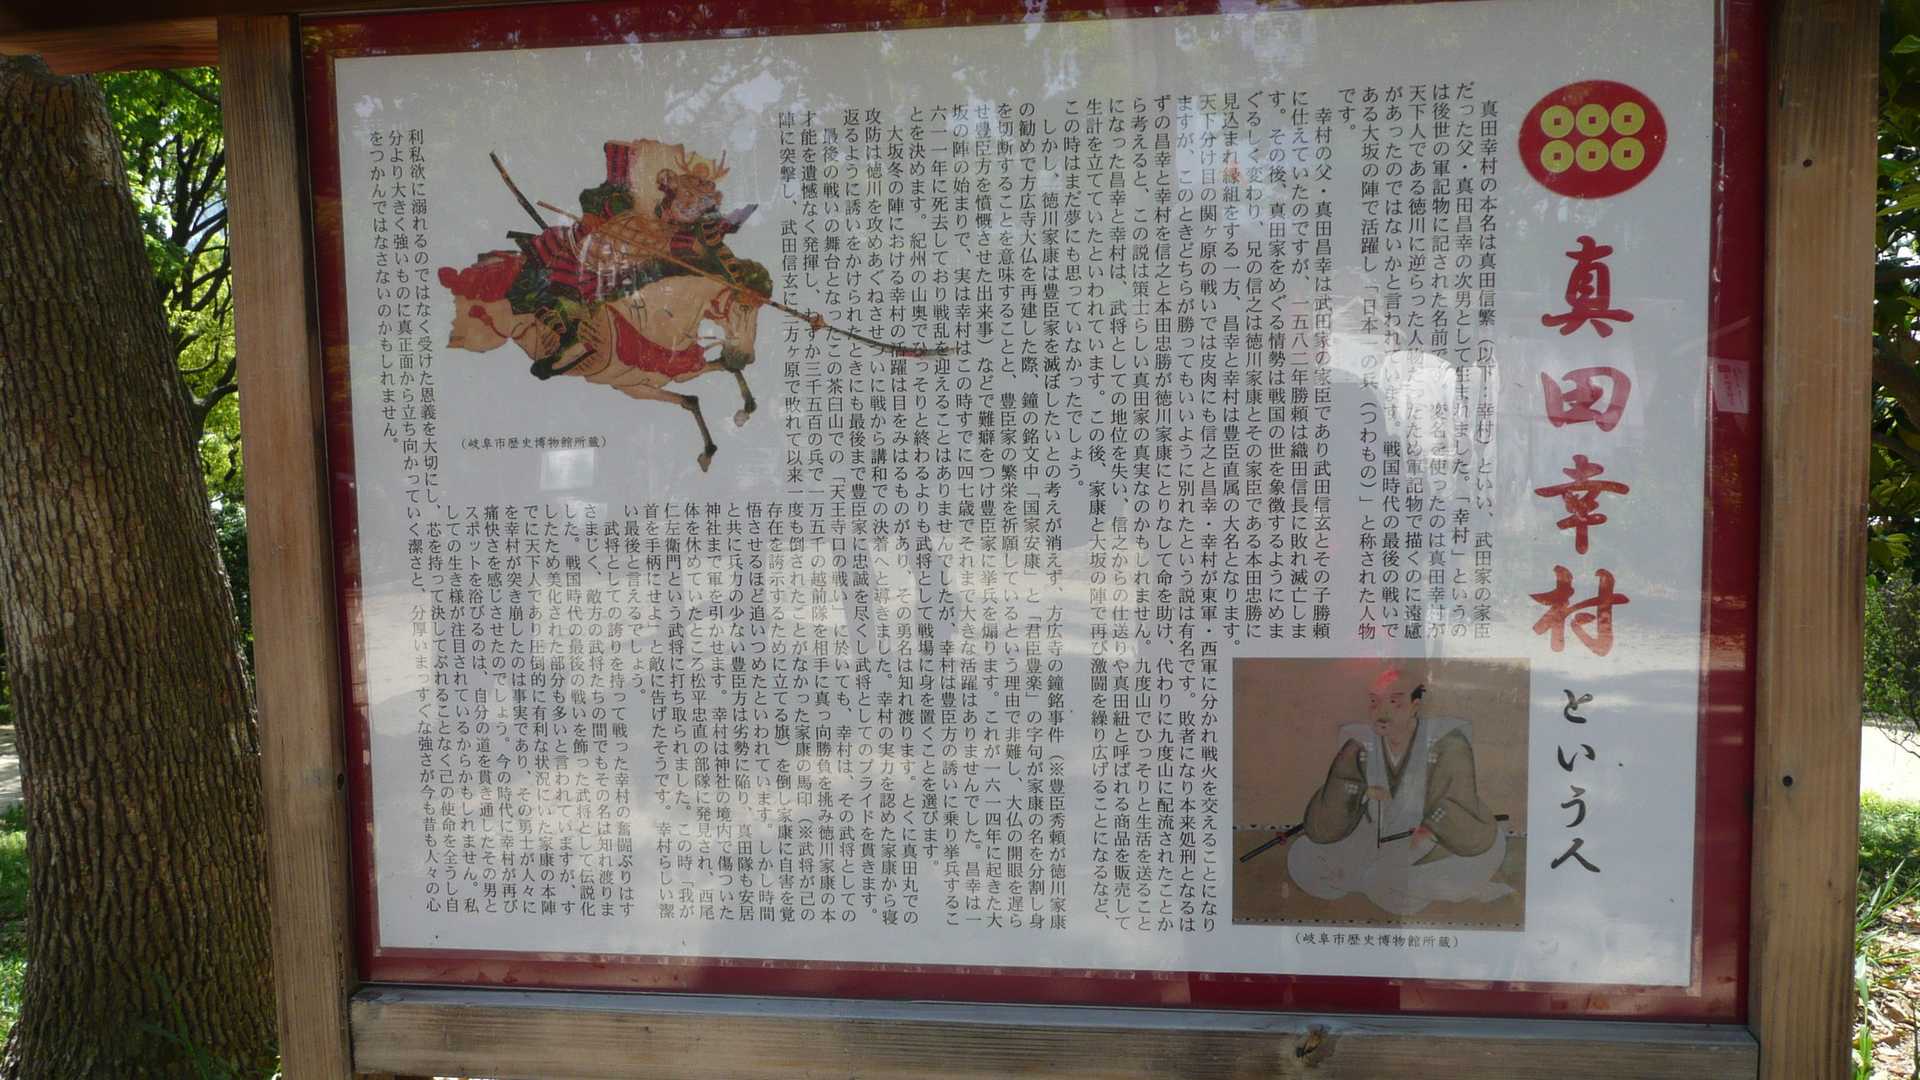 真田幸村という人
真田幸村の本名は真田信繁（以下：幸村）といい、武田家の家臣
だった父・真田昌幸の次男として生まれました。「幸村」というの
は後世の軍記物に記された名前で、
天下人である徳川に逆らった人物だったため軍記物で描くのに遠慮
があったのではないかと言われています。戦国時代の最後の戦いで
ある大坂の陣で活躍し「日本一の兵（つわもの）」と称された人物
です。
幸村の父・真田昌幸は武田家の家臣であり武田信玄とその子勝頼
に仕えていたのですが、一五八二年勝頼は織田信長に敗れ滅亡しま
す。その後、真田家をめぐる情勢は戦国の世を象徴するようにめま
ぐるしく変わり、兄の信之は徳川家康とその家臣である本田忠勝に
見込まれ縁組をする一方、昌幸と幸村は豊臣直属の大名となります。
天下分け目の関ヶ原の戦いでは皮肉にも信之と昌幸・幸村が東軍・西軍に分かれ戦火を交えることになり
ますが、このときどちらが勝ってもいいように別れたという説は有名です。敗者になり本来処刑となるは
ずの昌幸と幸村を信之と本田忠勝が徳川家康にとりなして命を助け、代わりに九度山に配流されたことか
ら考えると、この説は策士らしい真田家の真実なのかもしれません。九度山でひっそりと生活を送ること
になった昌幸と幸村は、武将としての地位を失い、信之からの仕送りや真田紐と呼ばれる商品を販売して
生計を立てていたといわれています。この後、家康と大坂の陣で再び激闘を繰り広げることになるなど、
この時はまだ夢にも思っていなかったでしょう。
しかし、徳川家康は豊臣家を滅ぼしたいとの考えが消えず、方広寺の鐘銘事件（※豊臣秀頼が徳川家康
の勧めで方広寺大仏を再建した際、鐘の銘文中「国家安康」と「君臣豊楽」の字句が家康の名を分割し身
を切断することを意味することと、豊臣家の繁栄を祈願しているという理由で非難し、大仏の開眼を遅ら
せ豊臣方を憤慨させた出来事）などで難癖をつけ豊臣家に挙兵を煽ります。これが一六一四年に起きた大
坂の陣の始まりで、実は幸村はこの時すでに四七歳でそれまで大きな活躍はありませんでした。昌幸は一
六一一年に死去しており戦乱を迎えることはありませんでしたが、幸村は豊臣方の誘いに乗り挙兵するこ
とを決めます。紀州の山奥でひっそりと終わるよりも武将として戦場に身を置くことを選びます。
大坂冬の陣における幸村の活躍は目をみはるものがあり、その勇名は知れ渡ります。とくに真田丸での
攻防は徳川を攻めあぐねさせついに戦から講和での決着へと導きました。幸村の実力を認めた家康から寝
返るように誘いをかけられたときにも最後まで豊臣家に忠誠を尽くし武将としてのプライドを貫きます。
最後の戦いの舞台となったこの茶臼山での「天王寺口の戦い」に於いても、幸村は、その武将としての
才能を遺憾なく発揮し、わずか三千五百の兵で一万五千の越前隊を相手に真っ向勝負を挑み徳川家康の本
陣に突撃し、武田信玄に三方ヶ原で敗れて以来一度も倒されたことがなかった家康の馬印（※武将が己の
存在を誇示するために立てる旗）を倒し家康に自害を覚
悟させるほど追いつめたといわれています。しかし時間
と共に兵力の少ない豊臣方は劣勢に陥り、真田隊も安居
神社まで軍を引かせます。幸村は神社の境内で傷ついた
体を休めていたところ松平忠直の部隊に発見され、西尾
仁左衛門という武将に打ち取られました。この時「我が
首を手柄にせよ」と敵に告げたそうです。幸村らしい潔
い最後と言えるでしょう。
武将としての誇りを持って戦った幸村の奮闘ぶりはす
さまじく、敵方の武将たちの間でもその名は知れ渡りま
した。戦国時代の最後の戦いを飾った武将として伝説化
したため美化された部分も多いと言われていますが、す
でに天下人であり圧倒的に有利な状況にいた家康の本陣
を幸村が突き崩したのは事実であり、その勇士が人々に
痛快さを感じさせたのでしょう。今の時代に幸村が再び
スポットを浴びるのは、自分の道を貫き通したその男と
しての生き様が注目されているからかもしれません。私
利私欲に溺れるのではなく受けた恩義を大切にし、芯を持って決してぶれることなく己の使命を全うし自
分より大きく強いものに真正面から立ち向かっていく潔さと、分厚いまっすぐな強さが今も昔も人々の心
をつかんではなさないのかもしれません。
（岐阜市歴史博物館所蔵）
（岐阜市歴史博物館所蔵）